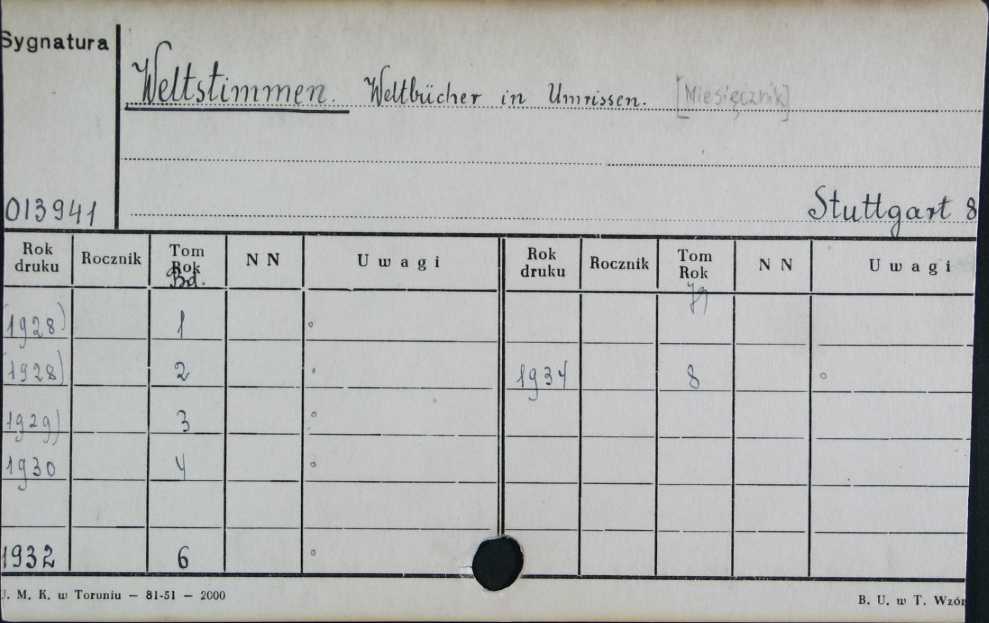 Sygnatura
Weltstimmen. Weltbücher in Umrissen. [Miesięcznik]
013941
Stuttgart 8
Rok druku Rocznik Tom Rok Bd. N N Uwagi Rok druku Rocznik Tom Rok Jg N N Uwagi
(1928) 1 °
(1928) 2 . 1934 8 °
(1929) 3 °
1930 4 °
1932 6 °
U. M. K. w Toruniu — 81-51 — 2000
B. U. w T. Wzór